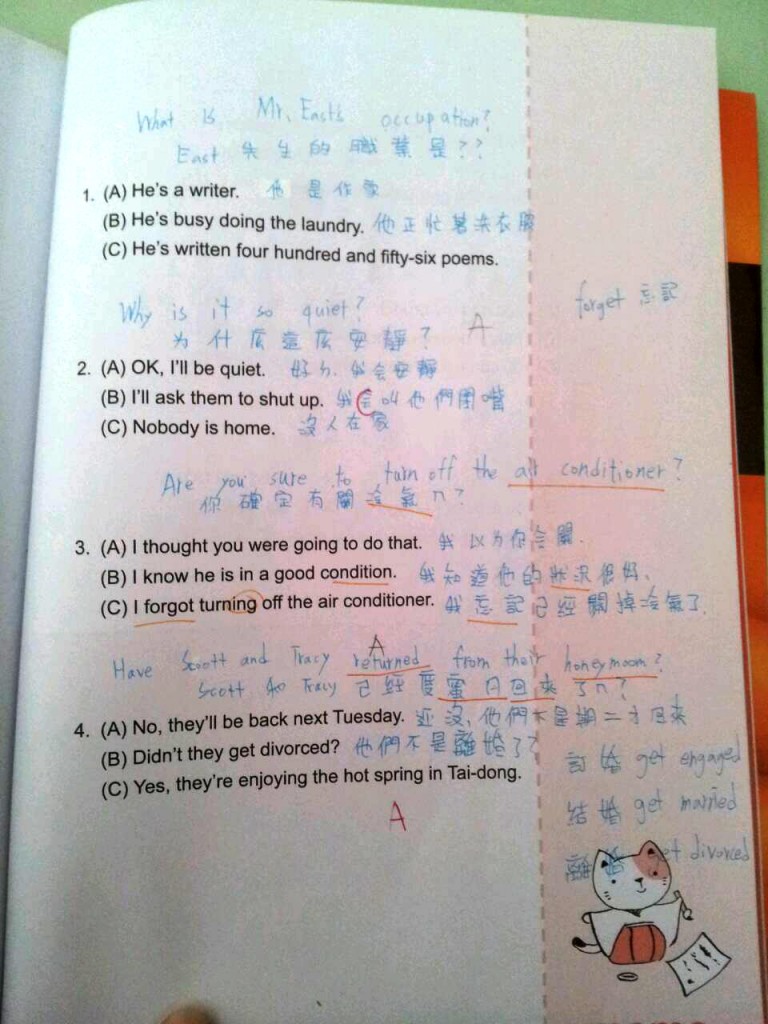 What is Mr. East's occupation?
East 先生的職業是??
1. (A) He's a writer. 他是作家
(B) He's busy doing the laundry. 他正忙著洗衣服
(C) He's written four hundred and fifty-six poems.
Why is it so quiet?
forget 忘記
为什麼這麼安靜? A
2. (A) OK, I'll be quiet. 好ㄉ. 我会安靜
(B) I'll ask them to shut up. 我会叫他們閉嘴
(C) Nobody is home. 沒人在家
Are you sure to turn off the air conditioner?
你確定有關冷氣ㄇ?
3. (A) I thought you were going to do that. 我以为你会關.
(B) I know he is in a good condition. 我知道他的狀況很好.
(C) I forgot turning off the air conditioner. 我忘記已經關掉冷氣了.
A
Have Scott and Tracy returned from their honeymoon?
Scott 和 Tracy 已經度蜜月回來了ㄇ?
4. (A) No, they'll be back next Tuesday. 还沒, 他們下星期二才回來
(B) Didn't they get divorced? 他們不是離婚了?
(C) Yes, they're enjoying the hot spring in Tai-dong.
A
訂婚 get engaged
結婚 get married
離婚 get divorced